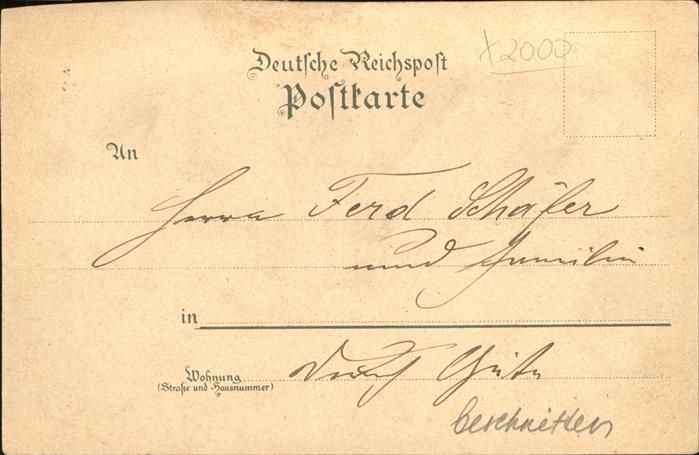 Deutsche Reichspost
x2000
Postkarte
An
Herrn Ferd Schäfer
und Familie
in
Wohnung
(Straße und Hausnummer)
Durch Güte
beschnitten